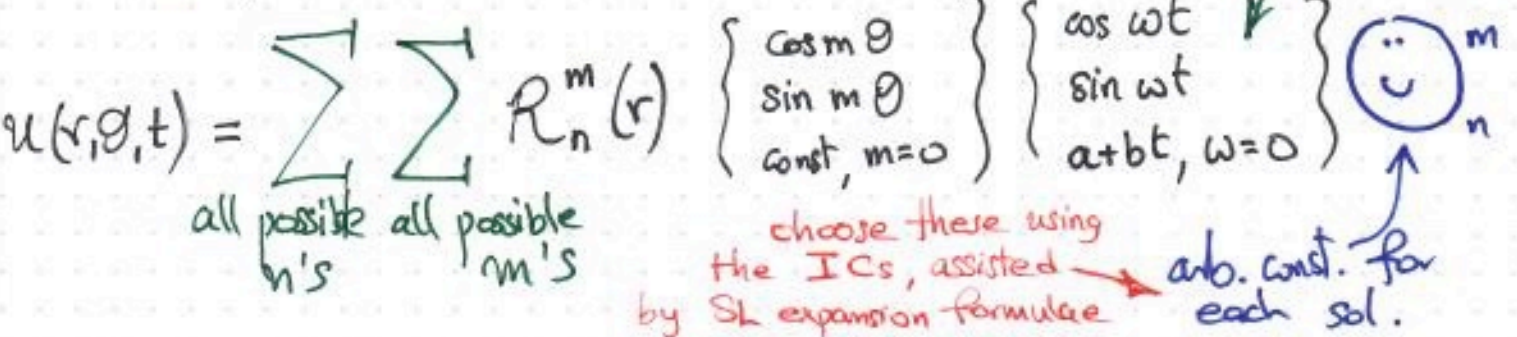 u(r,θ,t) = ∑ ∑ R_n^m(r) { cos mθ sin mθ const, m=0 } { cos ωt sin ωt a+bt, ω=0 } ☺_n^m
all possible n's
all possible m's
choose these using
the ICs, assisted
by SL expansion formulae
arb. const. for
each sol.